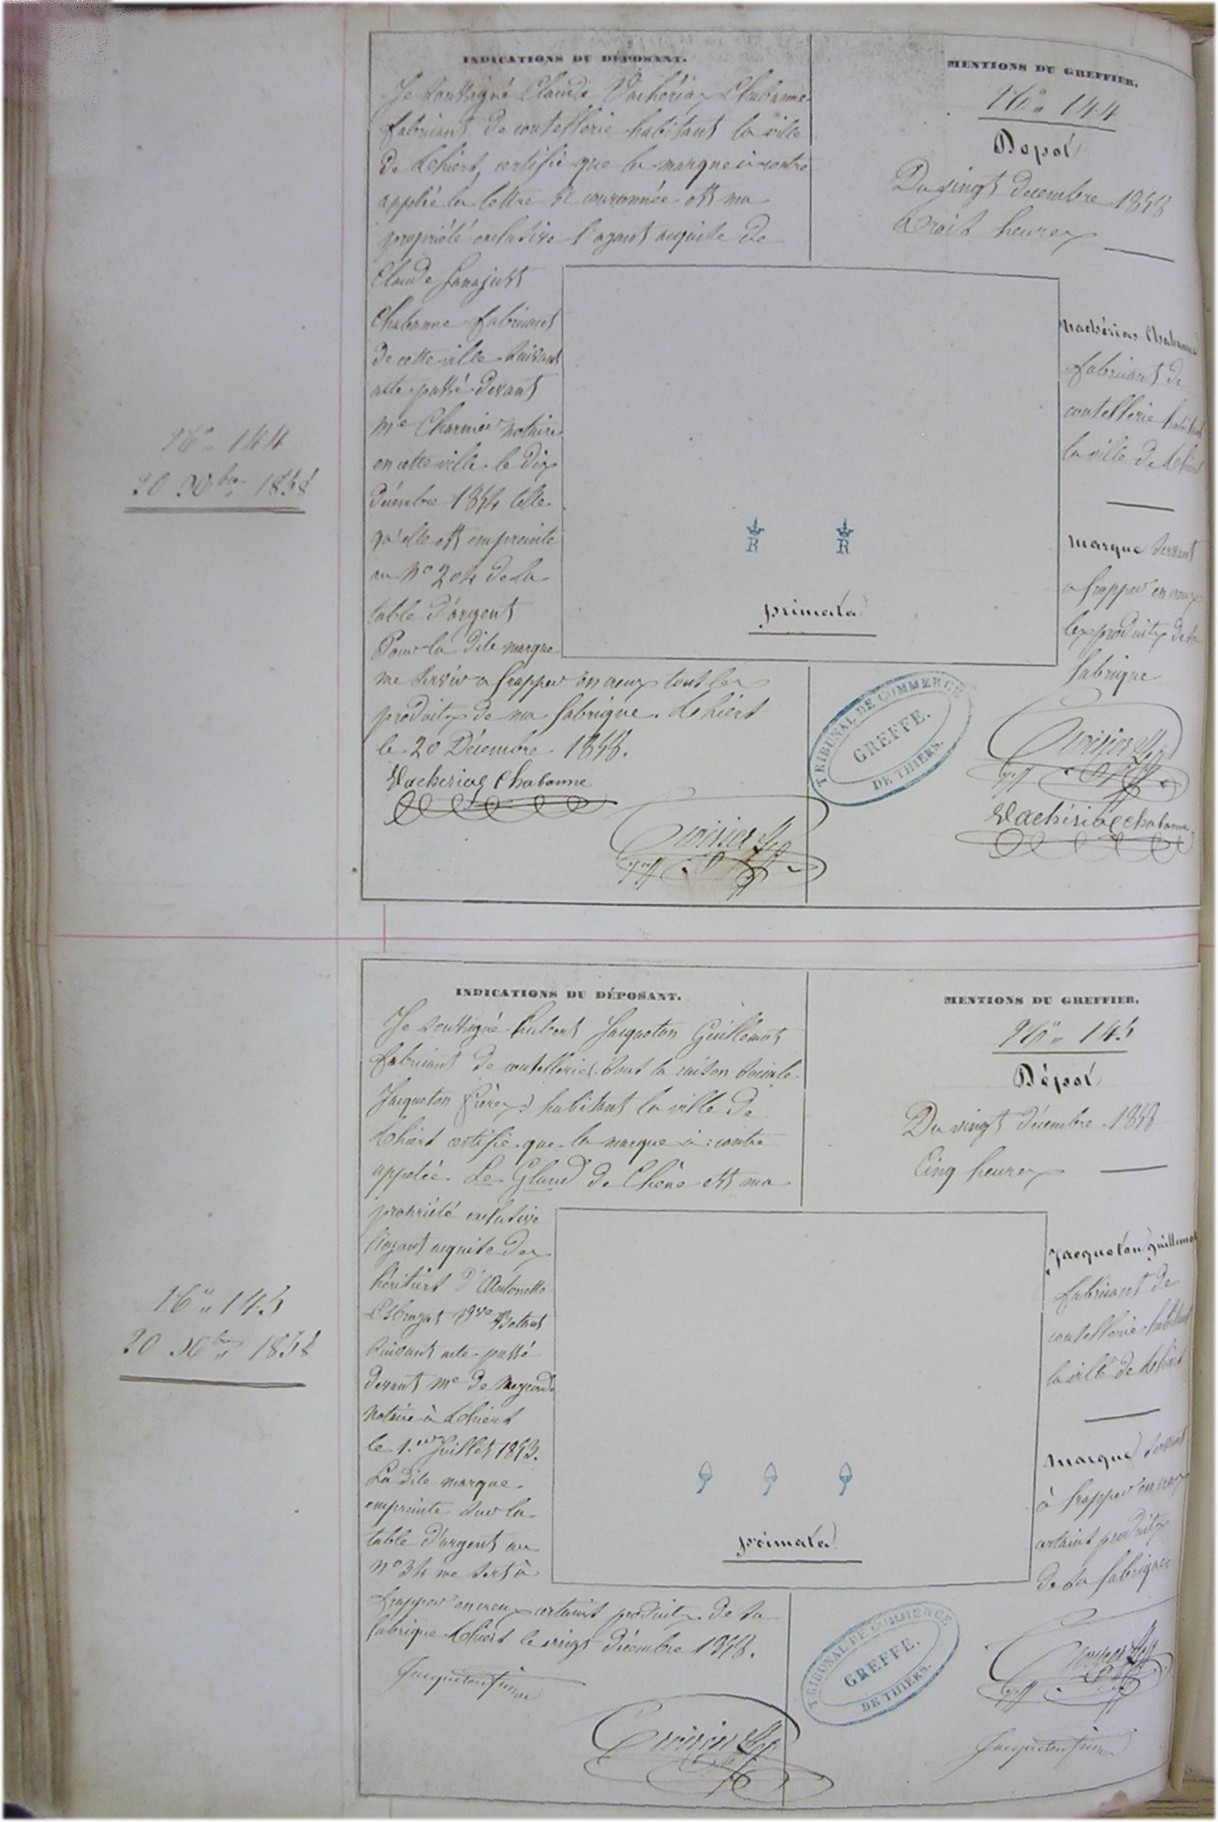 INDICATIONS DU DÉPOSANT.
Je soussigné Claude Vachérias Chabanne
fabricant de coutellerie habitant la ville
de Thiers, certifie que la marque ci contre
appelée la lettre R couronnée est ma
propriété exclusive l'ayant acquise de
Claude
Chabanne fabricant
de cette ville suivant
acte passé devant
Me Charmier notaire
en cette ville le dix
décembre 1854 telle
qu'elle est empreinte
au No 204 de la
table d'argent
Pour la dite marque
me servir a frapper en creux tout les
produits de ma fabrique. Thiers
le 20 Décembre 1858.
Vacherias Chabanne
MENTIONS DU GREFFIER.
No 144
Depot
Du vingt decembre 1858
a trois heures
Vachérias Chabanne
fabricant de
coutellerie habitant
la ville de Thiers
marque servant
a frapper en creux
les produits de sa
fabrique
R R
primata
TRIBUNAL DE COMMERCE
GREFFE.
DE THIERS.
Vachérias Chabanne
No 144
20 Xbre 1858
INDICATIONS DU DÉPOSANT.
Je soussigné hubert Jacqueton Guillemot
fabricant de coutellerie (sous la raison sociale
Jacqueton frères) habitant la ville de
Thiers certifie que la marque ci-contre
appelée Le Gland de Chêne est ma
propriété exclusive
l'ayant acquise des
héritiers d'Antonette
suivant acte passé
devant Me de
notaire à Thiers
le 1er Juillet 1853.
La dite marque
empreinte sur la
table d'argent au
No 34 me sert à
frapper en creux certains produits de sa
fabrique Thiers le vingt décembre 1858.
Jacqueton frères
MENTIONS DU GREFFIER.
No 145
Dépot
Du vingt décembre 1858
Cinq heures
Jacqueton Guillemot
fabricant de
coutellerie habitant
la ville de Thiers
marque servant
à frapper en creux
certains produits
de sa fabrique
primata
TRIBUNAL DE COMMERCE
GREFFE.
DE THIERS.
Jacqueton frères
No 145
20 Xbre 1858